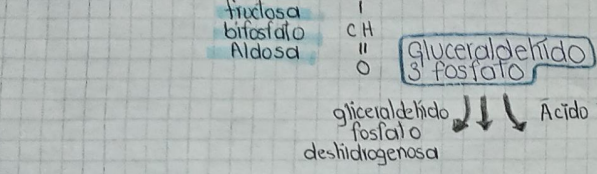 fructosa
bifosfato
Aldosa
CH
O
Gluceraldehído
3' fosfato
gliceraldehído
fosfato
deshidrogenosa
Ácido